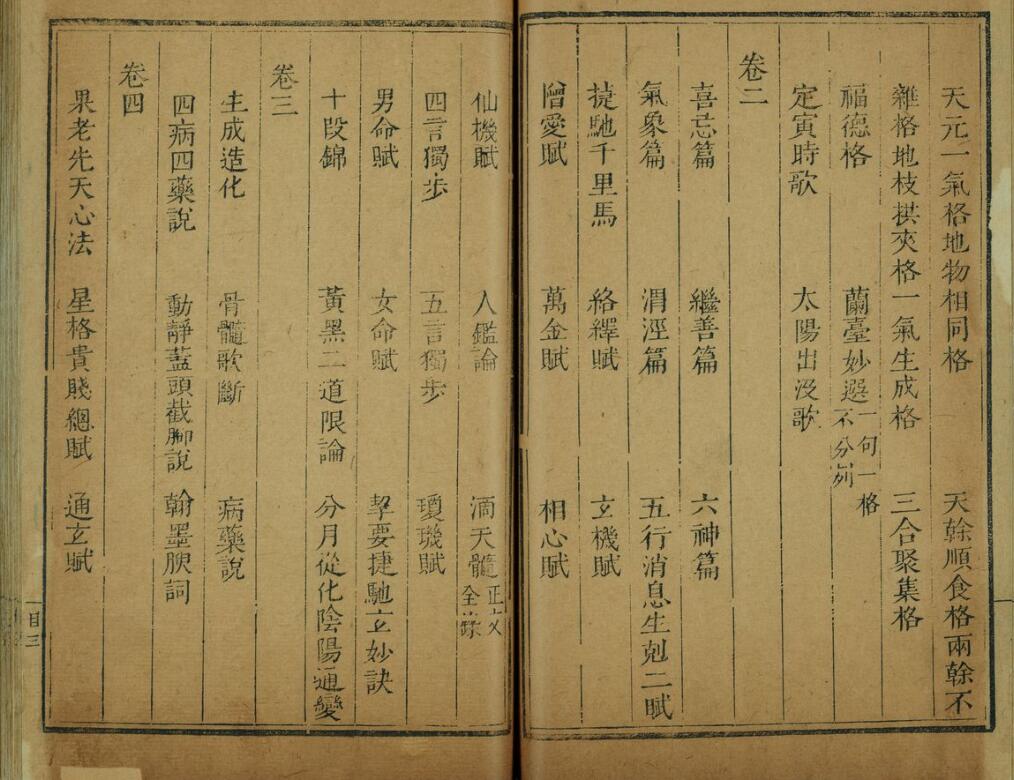 天元一氣格地物相同格　天榦順食格兩榦不
雜格地枝拱夾格一氣生成格　三合聚集格
福德格　蘭臺妙選一句一格不分列
定寅時歌　太陽出沒歌
卷二
喜忌篇　繼善篇　六神篇
氣象篇　渭涇篇　五行消息生剋二賦
捷馳千里馬　絡繹賦　玄機賦
憎愛賦　萬金賦　相心賦
仙機賦　人鑑論　滴天髓正文全錄
四言獨步　五言獨步　瓊璣賦
男命賦　女命賦　挈要捷馳玄妙訣
十段錦　黃黑二道限論　分月從化陰陽通變
卷三
生成造化　骨髓歌斷　病藥說
四病四藥說　動靜蓋頭截腳說　翰墨腴詞
卷四
果老先天心法　星格貴賤總賦　通玄賦
目三